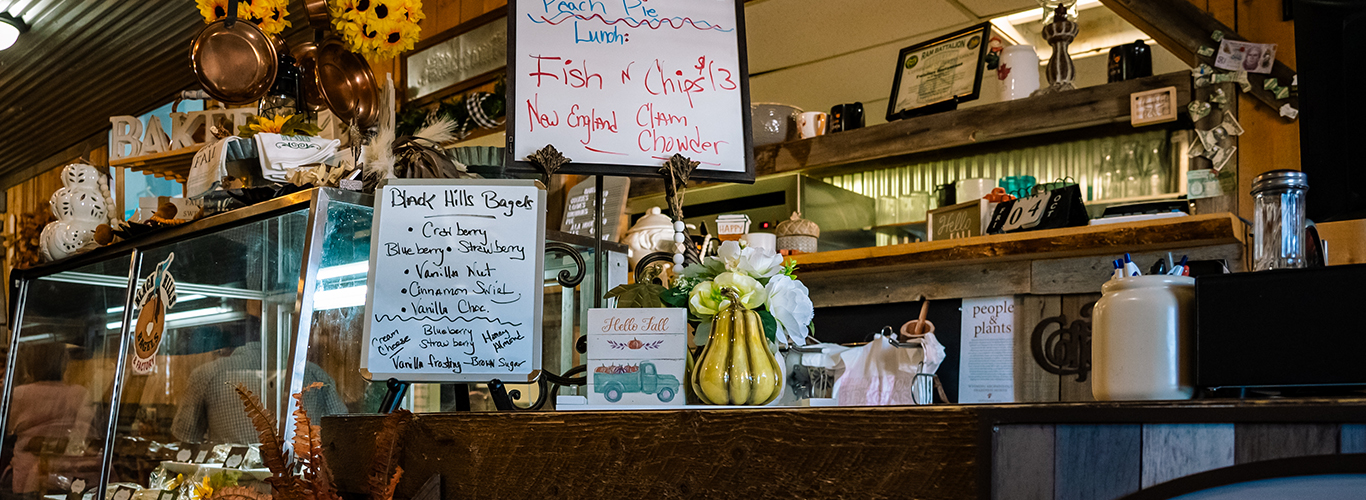 Peach Pie
Lunch:
Fish N Chips $13
New England Clam
Chowder
BAKE
FALL
Black Hills Bagels
• Cranberry
Blueberry • Strawberry
• Vanilla Nut
• Cinnamon Swirl
• Vanilla Choc.
Cream Cheese Blueberry Honey Almond
Strawberry
Vanilla frosting - Brown Sugar
Hello Fall
HAPPY
HELLO
04 OCT
people
&
plants